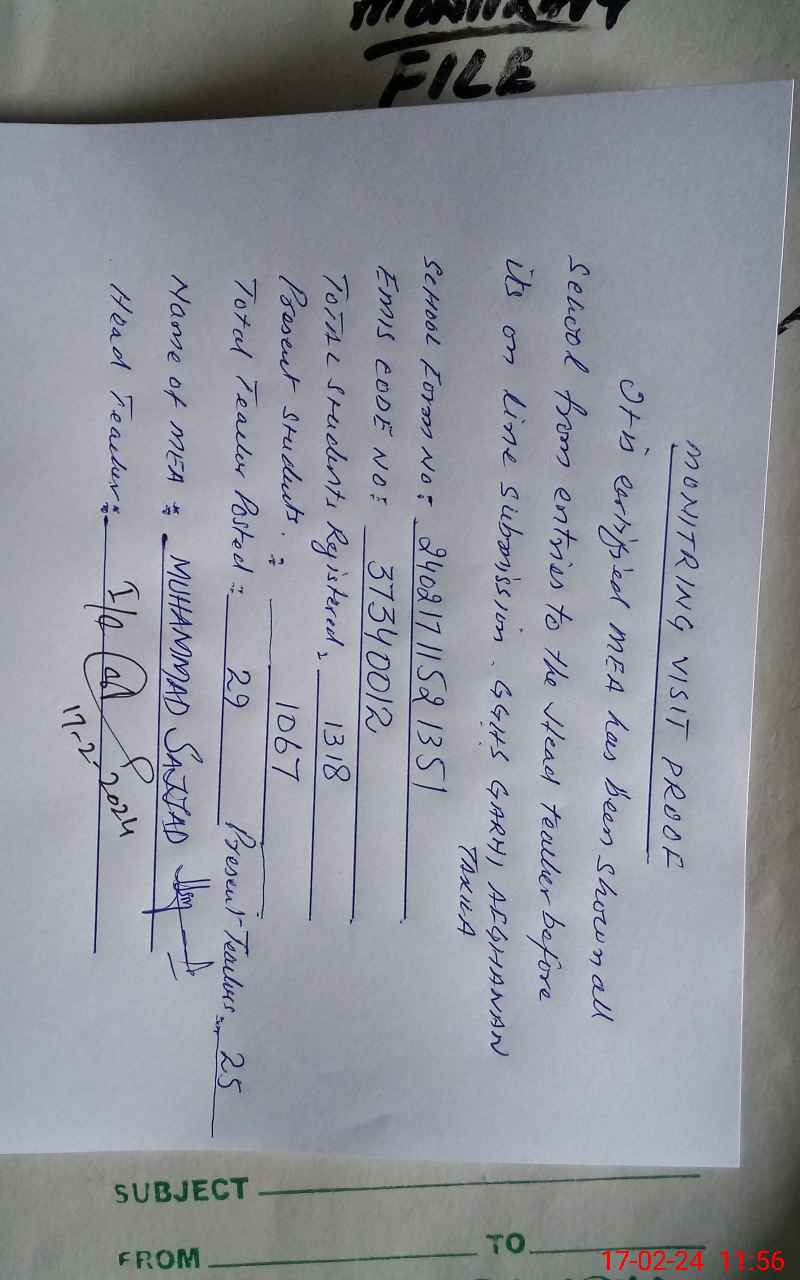 MONITRING
FILE
MONITRING VISIT PROOF
It is certified MEA has been shown all
School from entries to the Head teacher before
its on line submission. GGHS GARHI AFGHANAN
TAXILA
SCHOOL FORM NO: 24021711521351
EMIS CODE NO: 37340012
TOTAL Students Registered: 1318
Present Students: 1067
Total Teacher Posted: 29 Present Teachers: 25
Name of MEA: MUHAMMAD SAJJAD
Head Teacher: I/C
17-2-2024
SUBJECT
FROM TO
17-02-24 11:56